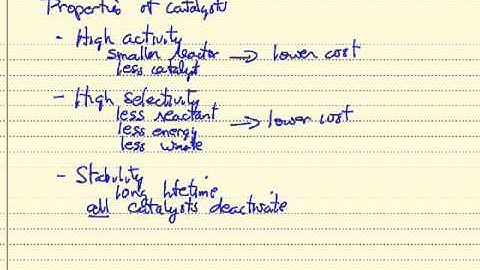 Properties of catalysts
- High activity
smaller reactor → lower cost
less catalyst
- High Selectivity
less reactant
less energy → lower cost
less waste
- Stability
long lifetime
all catalysts deactivate